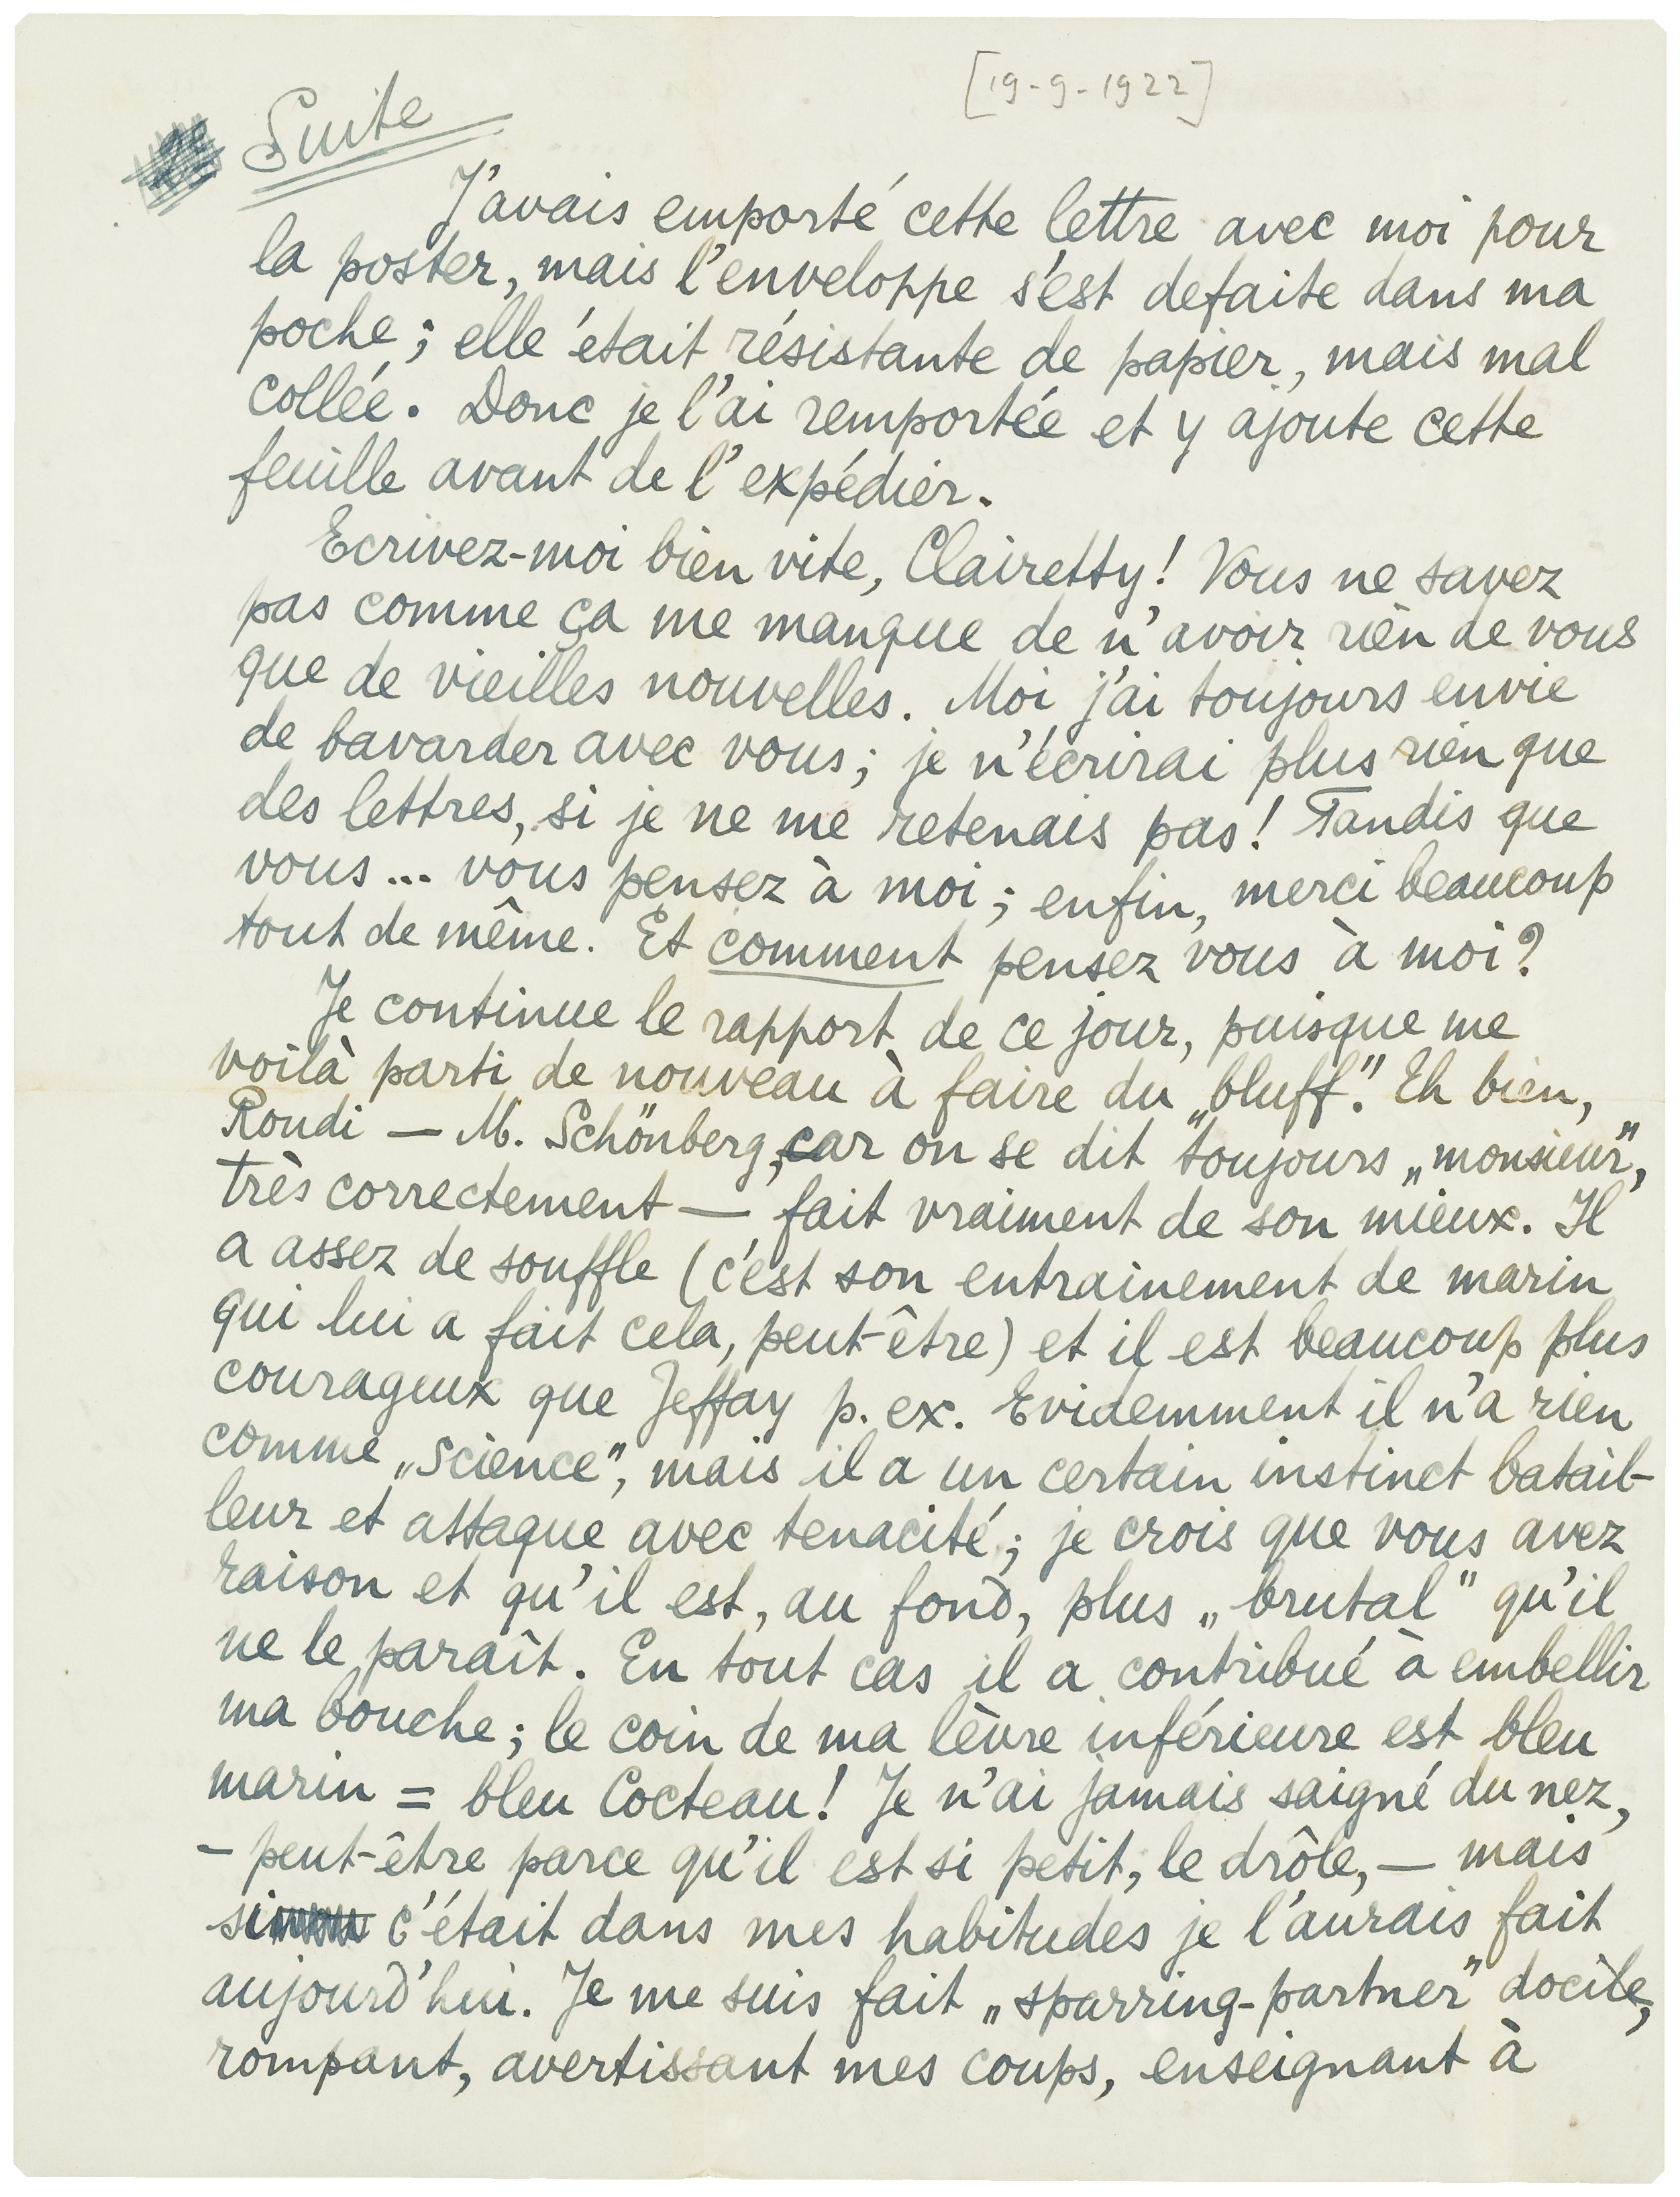 [19-9-1922]
Suite
J'avais emporté cette lettre avec moi pour
la poster, mais l'enveloppe s'est defaite dans ma
poche; elle était résistante de papier, mais mal
collée. Donc je l'ai remportée et y ajoute cette
feuille avant de l'expédier.
Ecrivez-moi bien vite, Clairetty! Vous ne savez
pas comme ça me manque de n'avoir rien de vous
que de vieilles nouvelles. Moi j'ai toujours envie
de bavarder avec vous; je n'écrirai plus rien que
des lettres, si je ne me retenais pas! Tandis que
vous... vous pensez à moi; enfin, merci beaucoup
tout de même. Et comment pensez vous à moi?
Je continue le rapport de ce jour, puisque me
voilà parti de nouveau à faire du „bluff". Eh bien,
Roudi — M. Schönberg, car on se dit toujours „monsieur",
très correctement — fait vraiment de son mieux. Il
a assez de souffle (c'est son entrainement de marin
qui lui a fait cela, peut-être) et il est beaucoup plus
courageux que Jeffay p. ex. Evidemment il n'a rien
comme „science", mais il a un certain instinct batail-
leur et attaque avec tenacité; je crois que vous avez
raison et qu'il est, au fond, plus „brutal" qu'il
ne le paraît. En tout cas il a contribué à embellir
ma bouche; le coin de ma lèvre inférieure est bleu
marin = bleu Cocteau! Je n'ai jamais saigné du nez,
– peut-être parce qu'il est si petit, le drôle, — mais
si c'était dans mes habitudes je l'aurais fait
aujourd'hui. Je me suis fait „sparring-partner" docile,
rompant, avertissant mes coups, enseignant à